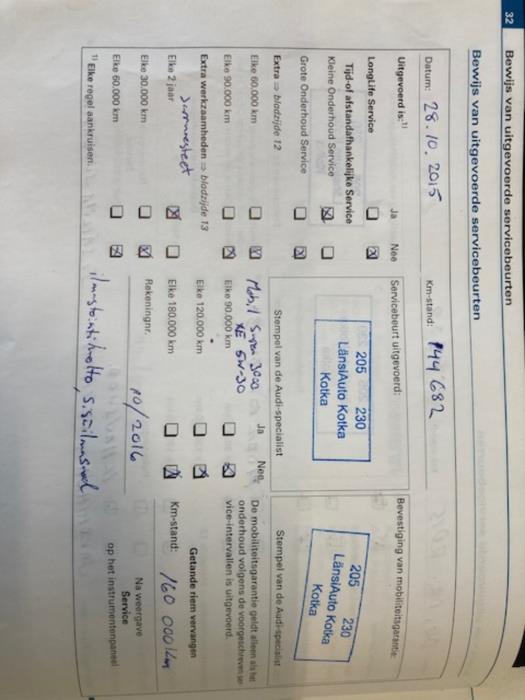 32 Bewijs van uitgevoerde servicebeurten
Bewijs van uitgevoerde servicebeurten
Datum: 28.10.2015
Km-stand: 144 682
Uitgevoerd is:¹⁾
Ja Nee
LongLife Service
Tijd-of afstandafhankelijke Service
Kleine Onderhoud Service
Grote Onderhoud Service
Servicebeurt uitgevoerd:
205 230
LänsiAuto Kotka
Kotka
Stempel van de Audi-specialist
Bevestiging van mobiliteitsgarantie:
205 230
LänsiAuto Kotka
Kotka
Stempel van de Audi-specialist
Extra ⇒ bladzijde 12
Elke 60.000 km
Elke 90.000 km
Mobil Super 3000
XE 5W-30
Ja Nee
De mobiliteitsgarantie geldt alleen als het
onderhoud volgens de voorgeschreven ser-
vice-intervallen is uitgevoerd.
Extra werkzaamheden ⇒ bladzijde 13
Elke 2 jaar
Elke 30.000 km
Elke 60.000 km
Elke 90.000 km
Elke 120.000 km
Elke 180.000 km
Getande riem vervangen
Km-stand: 160 000 km
Rekeningnr.
10/2016
Na weergave
Service
op het instrumentenpaneel
¹⁾ Elke regel aankruisen.